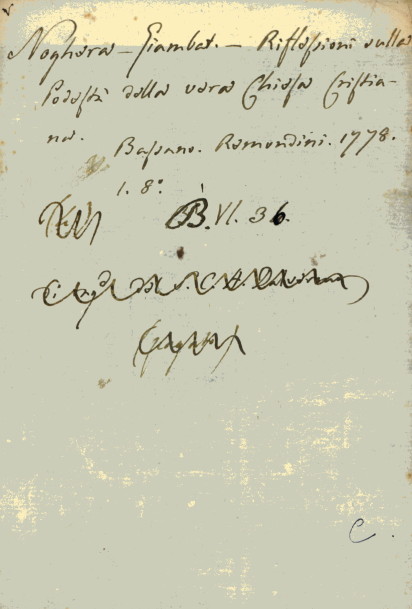 Noghera - Giambat. - Riflessioni sulla
Podestà della vera Chiesa Cristia-
na.
Bassano. Remondini. 1778.
1. 8°.
B. VI. 36.
C.